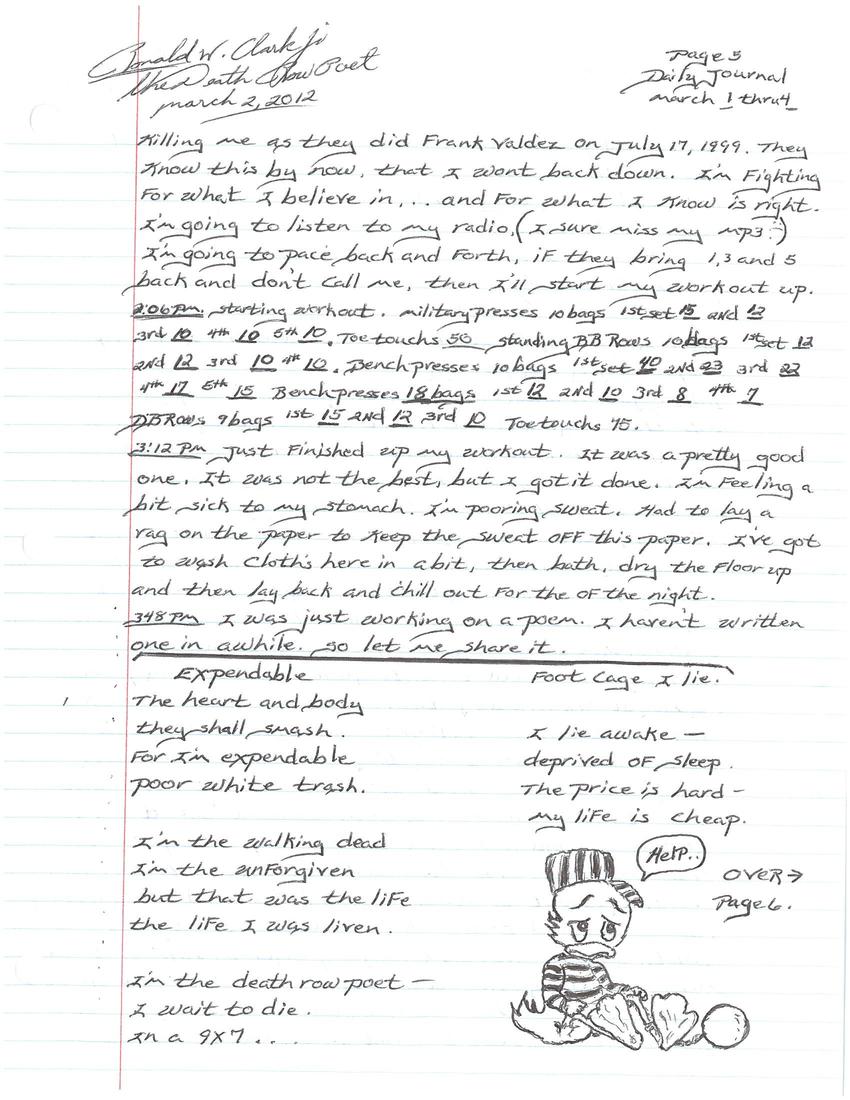 Ronald W. Clark Jr
The Death Row Poet
march 2, 2012
Page 5
Daily Journal
march 1 thru 4
Killing me as they did Frank Valdez on July 17, 1999. They
Know this by now, that I wont back down. I'm Fighting
For what I believe in,.. and For what I Know is right.
I'm going to listen to my radio, (I sure miss my mp3:)
I'm going to pace back and Forth, if they bring 1,3 and 5
back and don't call me, then I'll start my workout up.
2:06 PM. starting workout. military presses 10 bags 1st set 15 2nd 12
3rd 10 4th 10 5th 10. Toe touches 50 standing BB Rows 10 bags 1st set 12
2nd 12 3rd 10 4th 10. Bench presses 10 bags 1st set 40 2nd 23 3rd 22
4th 17 5th 15 Bench presses 18 bags 1st 12 2nd 10 3rd 8 4th 7
DB Rows 9 bags 1st 15 2nd 12 3rd 10 Toe touches 75.
3:12 PM Just Finished up my workout. It was a pretty good
one. It was not the best, but I got it done. I'm Feeling a
bit sick to my stomach. I'm pooring sweat. Had to lay a
rag on the paper to Keep the sweat OFF this paper. I've got
to wash Cloth's here in a bit, then bath, dry the Floor up
and then lay back and chill out For the OF the night.
348 PM I was just working on a poem. I haven't written
one in awhile. so let me share it.
Expendable
The heart and body
they shall smash.
For I'm expendable
poor white trash.
I'm the walking dead
I'm the unForgiven
but that was the liFe
the liFe I was liven.
I'm the death row poet —
I wait to die.
In a 9x7...
Foot Cage I lie.
I lie awake —
deprived OF sleep.
The price is hard -
my liFe is cheap.
Help..
OVER →
Page 6.